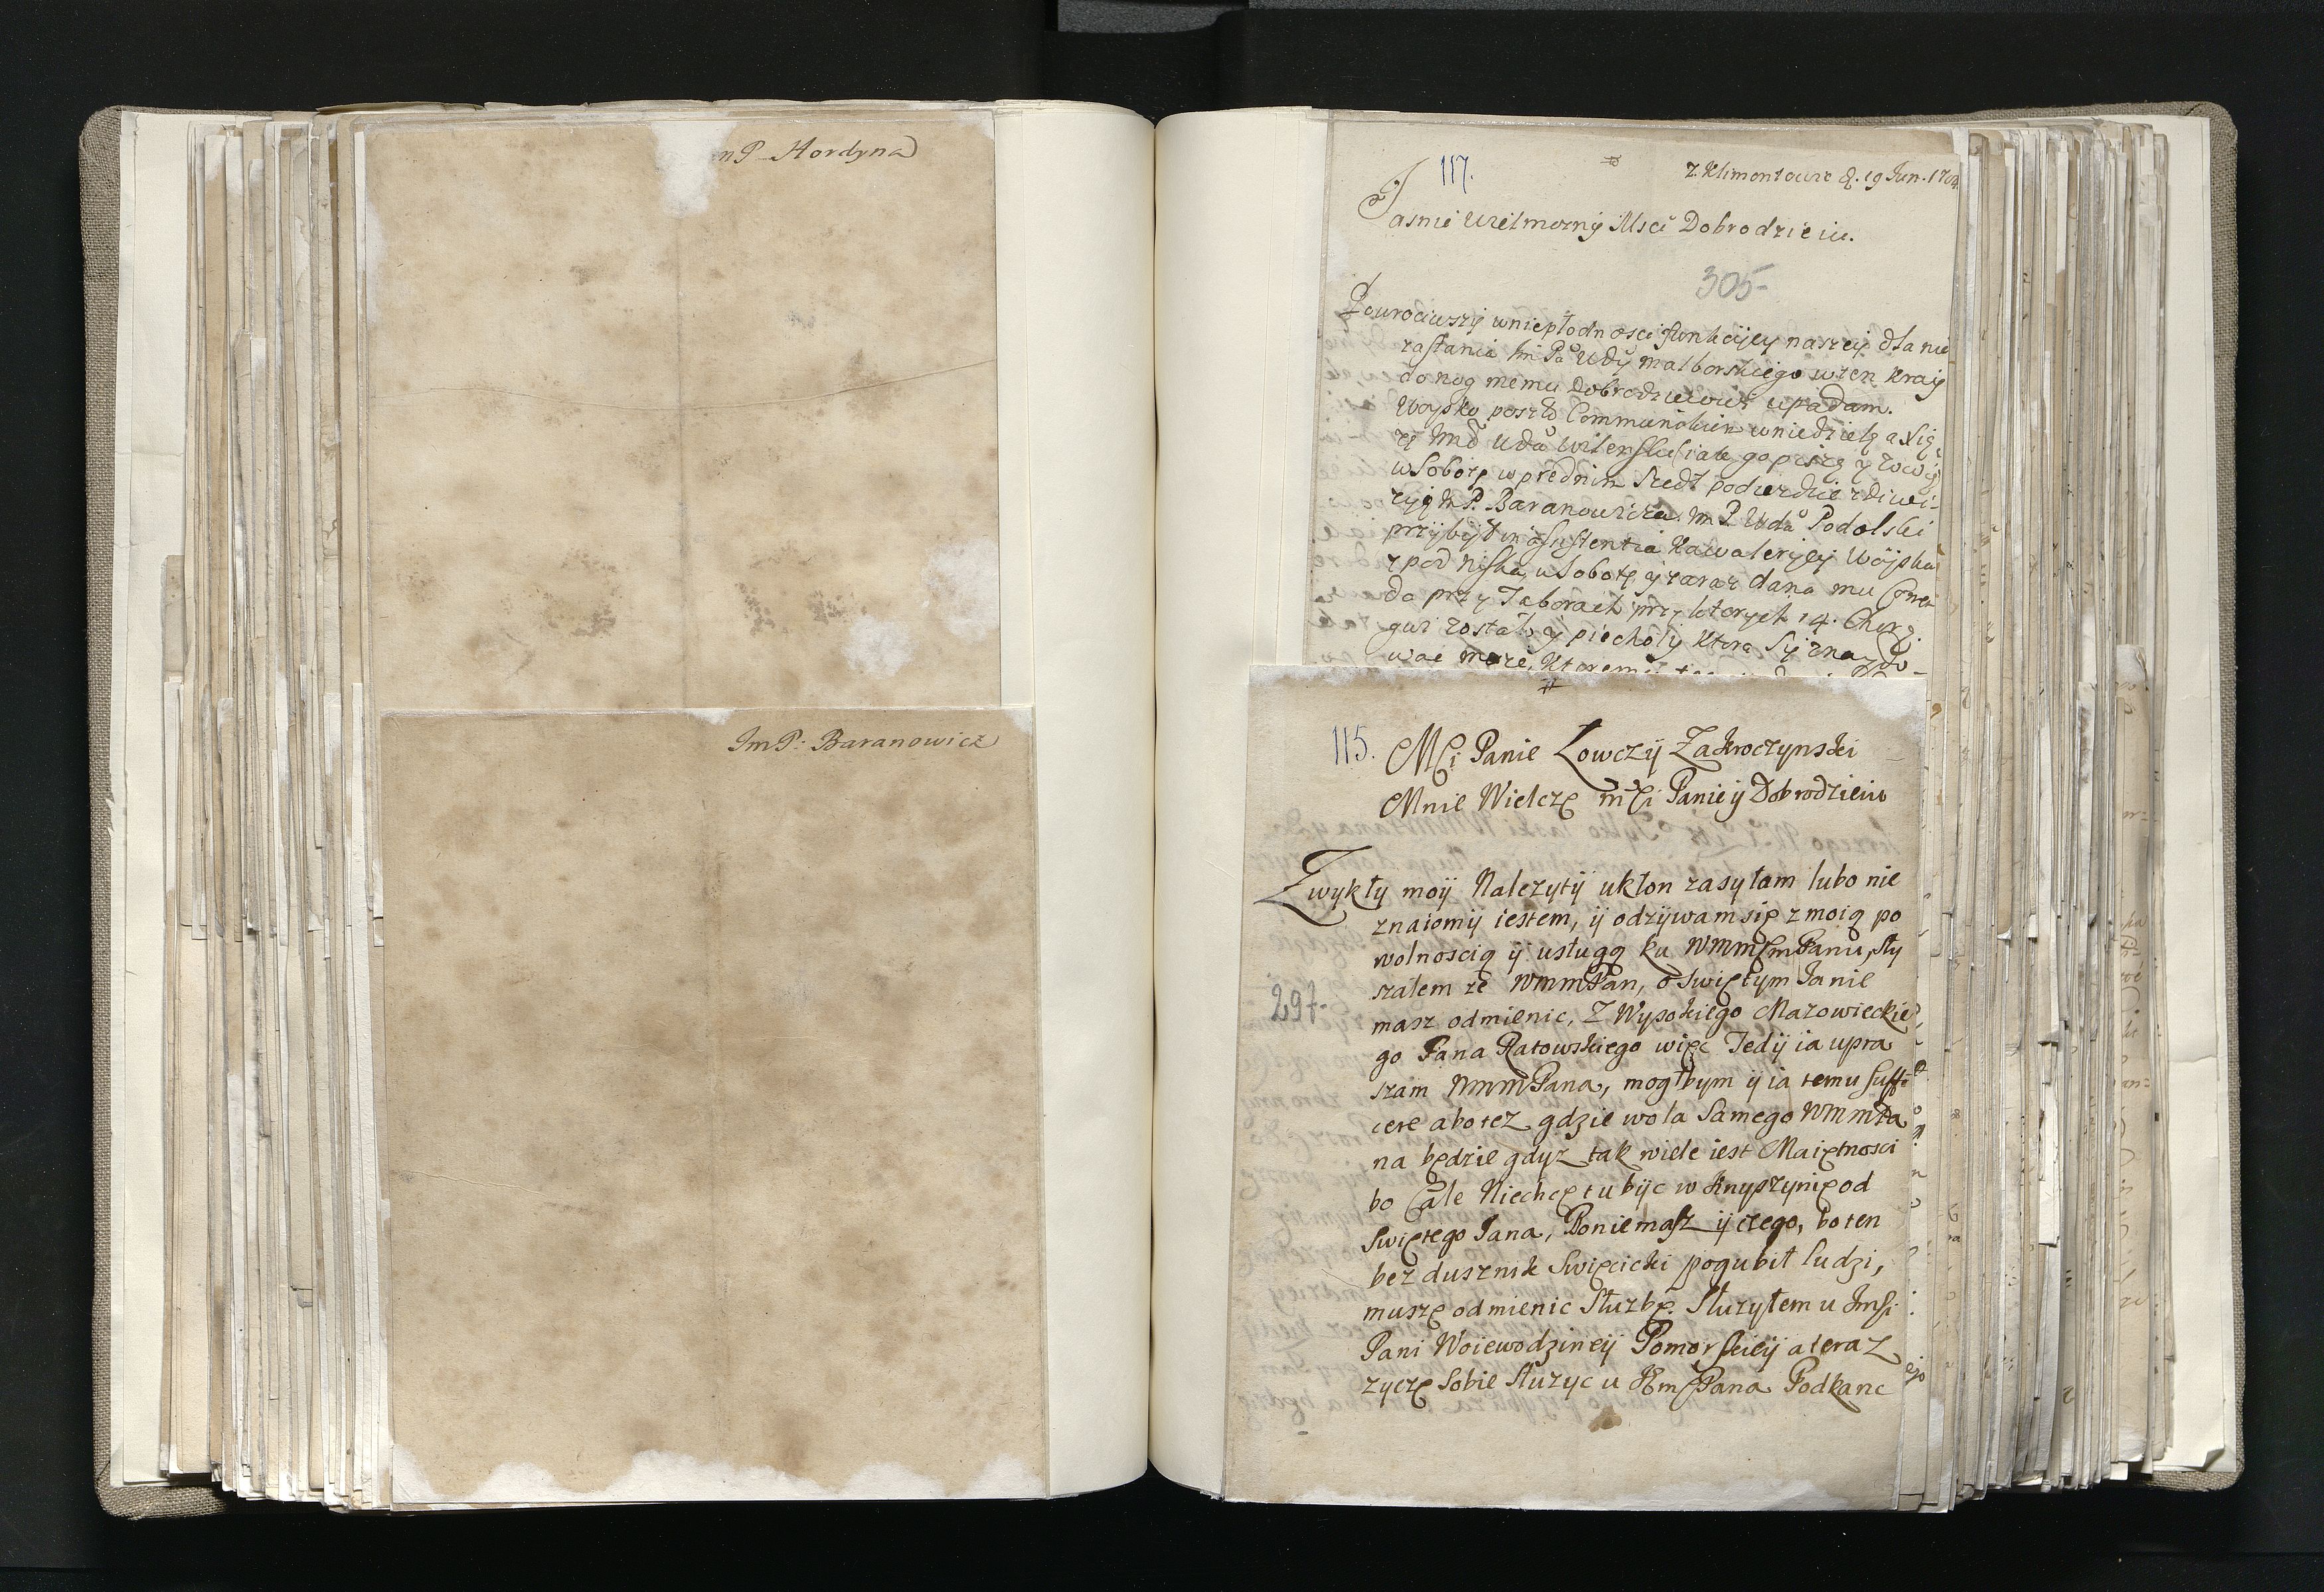 nP Hordyna
ImP: Baranowicz
117.
z. Klimontowa d. 19 Jun. 170
Jasnie Wielmozny Msci Dobrodzieiu.
305
Powrociwszÿ w niepłodnosci funkcÿiey naszeÿ dla nie
zastania Im Pa Wdÿ malborskiego w ten kraÿ
do nog memu Dobrodzieiowi upadam.
Woysko poszło Communikiem w niedzielę a Xią
zę Imć Wda Wilenski
w Sobotę w przednim szedł podiezdzie z diwi-
zyią ImP. Baranowicza. Im P. Wda Podolski
przÿbÿł in assistentia kawaleriÿeÿ Woÿska
z pod Niska w Sobotę ÿ zaraz dana mu
da przy Taborach przy ktorych 14. Chorą
gwi został, ÿ piechotÿ ktora Sÿ znaydo-
wac moze, ktoremu
115.
MSci Panie Łowczÿ Zakroczynski
Mnie Wielcze mSci Panie ÿ Dobrodzieiu
Zwykły moÿ Nalezytÿ ukłon zasyłam lubo nie
znaiomÿ iestem, ÿ odzÿwam się z moią po
wolnoscią ÿ usługą ku WMMSmPanu, sły
szałem ze WMMPan, o Swiętym Janie
297-
masz odmienic, Z Wysokiego Mazowieckie
go Pana Ratowskiego więc Tedÿ ia upra
szam WMMPana, mogłbym ÿ ia temu suffi
cere abo tez gdzie wola Samego WMMPa
na będzie gdyz tak wiele iest Maiętnosci
bo Cale Niechcę tu bÿc w Knyszynie od
Swiętego Jana, Poniemasz ÿ czego, bo ten
bez dusznik Swięcicki pogubił ludzi,
muszę odmienic Słuzbę. Słuzyłem u JmSi
Pani Woiewodzineÿ Pomorskieÿ a teraz
zyczę Sobie Słuzyc u JEmSPana Podkanc